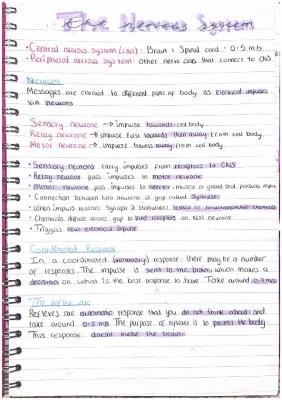 The Nervous System
• Central nervous system (CNS): Brain & Spinal cord : 0.5 m/s
• Peripheral nervous system: other nerve cells that connect to CNS
Neurons
Messages are carried to different parts of body as electrical impulses
via neurons
Sensory neurone → impulse towards cell body.
Relay neurone → impulse first towards then away from cell body.
Motor neurone → impulse travels away from cell body.
• Sensory neurons carry impulses from receptors to CNS
• Relay neurone pass impulses to motor neurone
• Motor neurone pass impulses to effector, muscle or gland that produces
• Connection between two neurons is gap called Synapses
• When impulse reaches Synapse it stimulates release of neurotransmitter chemicals
• Chemicals diffuse across gap & bind receptors on next neurone
• Triggers new electrical impulse
Coordinated Response
In a coordinated (voluntary) response there may be a number
of responses. The impulse is sent to the brain, which makes a
decision on what is the best response to have. Take around 0.7 m/s
The reflex arc
Reflexes are automatic response that you do not think about and
take around 0.2 m/s. The purpose of reflexes is to protect the body.
This response doesnt involve the brain